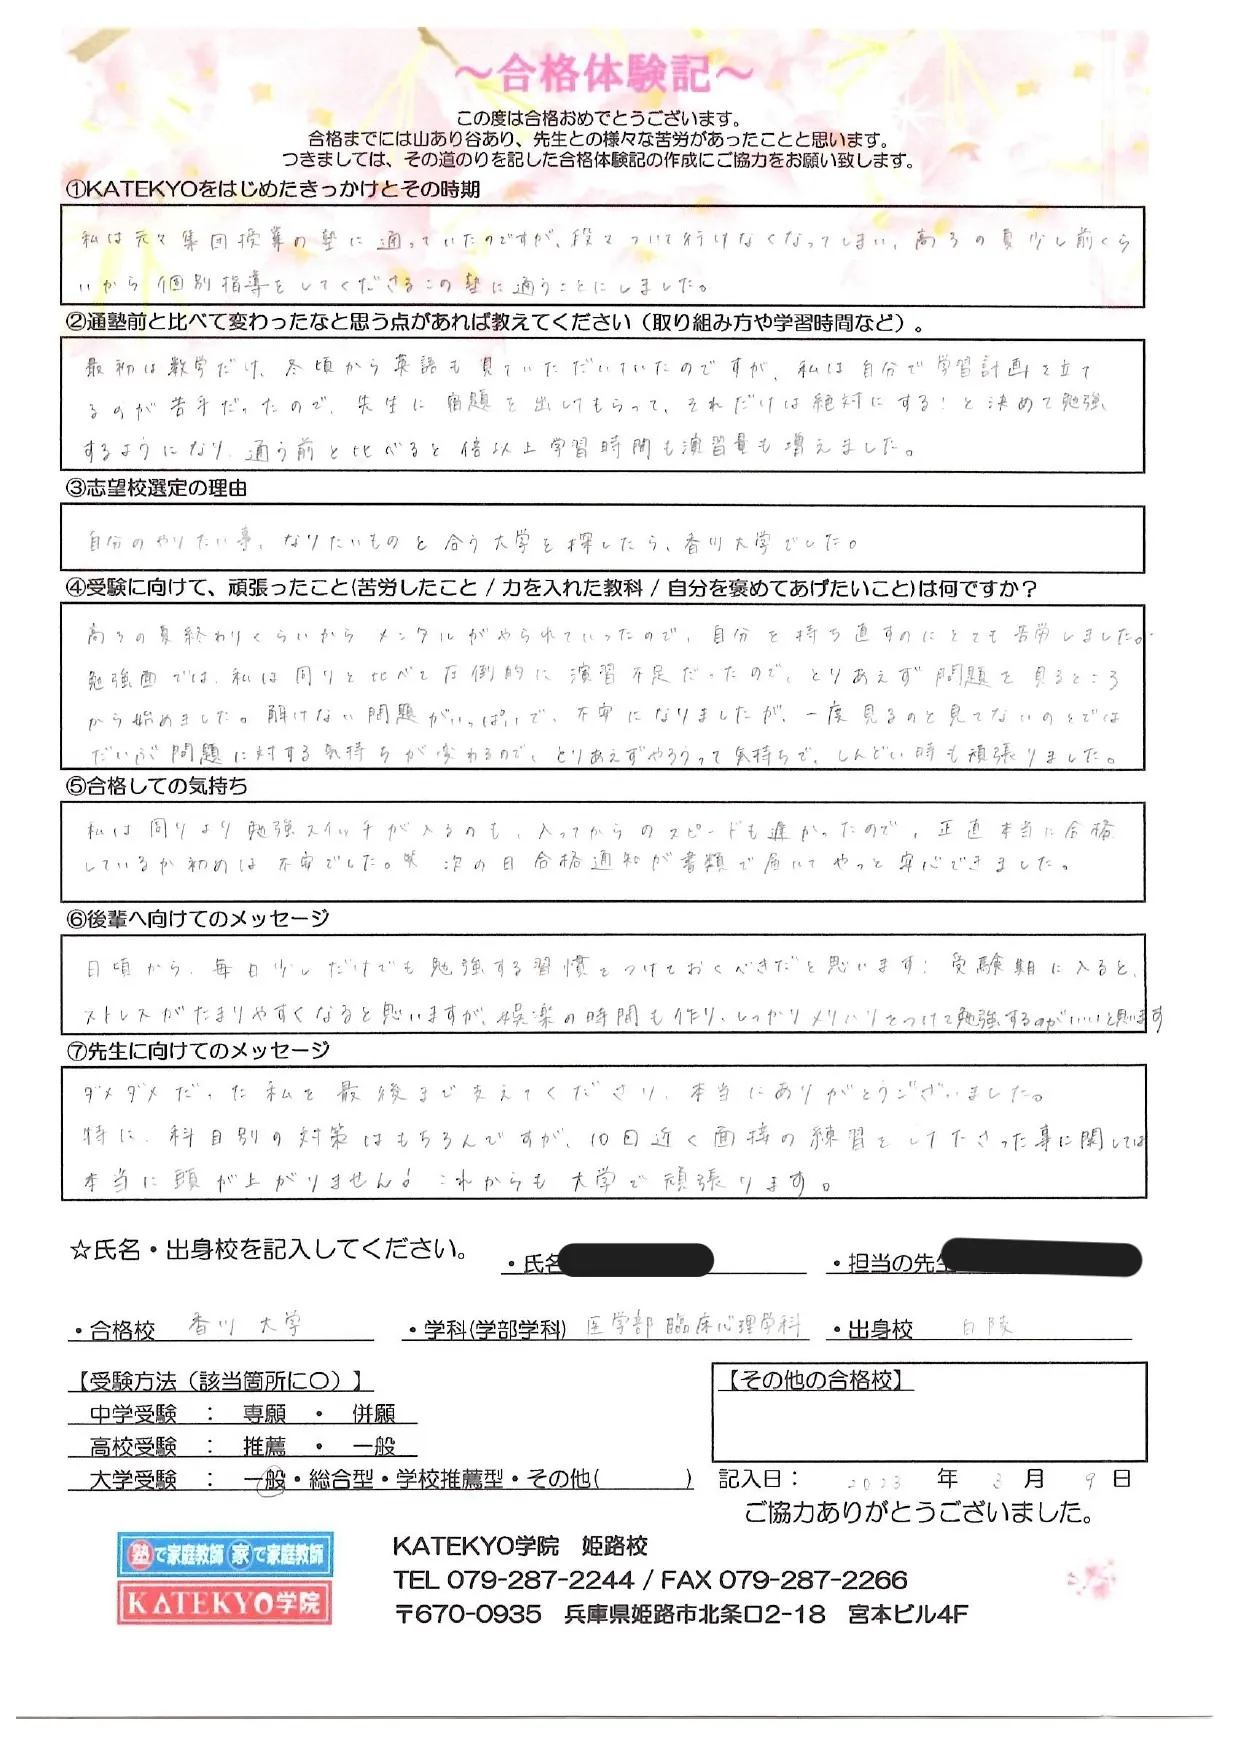 ～合格体験記～
この度は合格おめでとうございます。
合格までには山あり谷あり、先生との様々な苦労があったことと思います。
つきましては、その道のりを記した合格体験記の作成にご協力をお願い致します。
①KATEKYOをはじめたきっかけとその時期
私は元々集団授業の塾に通っていたのですが、段々ついて行けなくなってしまい、高3の夏少し前くら
いから個別指導をしてくださるこの塾に通うことにしました。
②通塾前と比べて変わったなと思う点があれば教えてください（取り組み方や学習時間など）。
最初は数学だけ、冬頃から英語も見ていただいていたのですが、私は自分で学習計画を立て
るのが苦手だったので、先生に宿題を出してもらって、それだけは絶対にする！と決めて勉強
するようになり、通う前と比べると倍以上学習時間も演習量も増えました。
③志望校選定の理由
自分のやりたい事、なりたいものと合う大学を探したら、香川大学でした。
④受験に向けて、頑張ったこと(苦労したこと / 力を入れた教科 / 自分を褒めてあげたいこと)は何ですか？
高3の夏終わりくらいからメンタルがやられていったので、自分を持ち直すのにとても苦労しました。
勉強面では、私は周りと比べて圧倒的に演習不足だったので、とりあえず問題を見るところ
から始めました。解けない問題がいっぱいで、不安になりましたが、一度見るのと見てないのとでは
だいぶ問題に対する気持ちが変わるので、とりあえずやろうって気持ちで、しんどい時も頑張りました。
⑤合格しての気持ち
私は周りより勉強スイッチが入るのも、入ってからのスピードも遅かったので、正直本当に合格
しているか初めは不安でした。笑 次の日合格通知が書類で届いてやっと安心できました。
⑥後輩へ向けてのメッセージ
日頃から、毎日少しだけでも勉強する習慣をつけておくべきだと思います！受験期に入ると、
ストレスがたまりやすくなると思いますが、娯楽の時間も作り、しっかりメリハリをつけて勉強するのがいいと思います
⑦先生に向けてのメッセージ
ダメダメだった私を最後まで支えてくださり、本当にありがとうございました。
特に、科目別の対策はもちろんですが、10回近く面接の練習をして下さった事に関しては
本当に頭が上がりません！これからも大学で頑張ります。
☆氏名・出身校を記入してください。
・氏名
・担当の先生
・合格校 香川大学 ・学科(学部学科) 医学部臨床心理学科 ・出身校 白陵
【受験方法（該当箇所に〇）】
【その他の合格校】
中学受験 ： 専願 ・ 併願
高校受験 ： 推薦 ・ 一般
大学受験 ： 一般・総合型・学校推薦型・その他( )
記入日： 2023 年 3 月 9 日
ご協力ありがとうございました。
塾で家庭教師 家で家庭教師
KATEKYO学院
KATEKYO学院 姫路校
TEL 079-287-2244 / FAX 079-287-2266
〒670-0935 兵庫県姫路市北条口2-18 宮本ビル4F